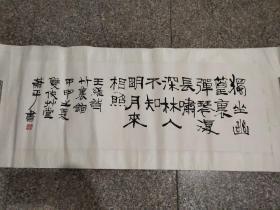 獨坐幽
篁裏
彈琴復
長嘯
深林人
不知
明月來
相照
王維詩
竹裏館
甲申之夏
堂
書